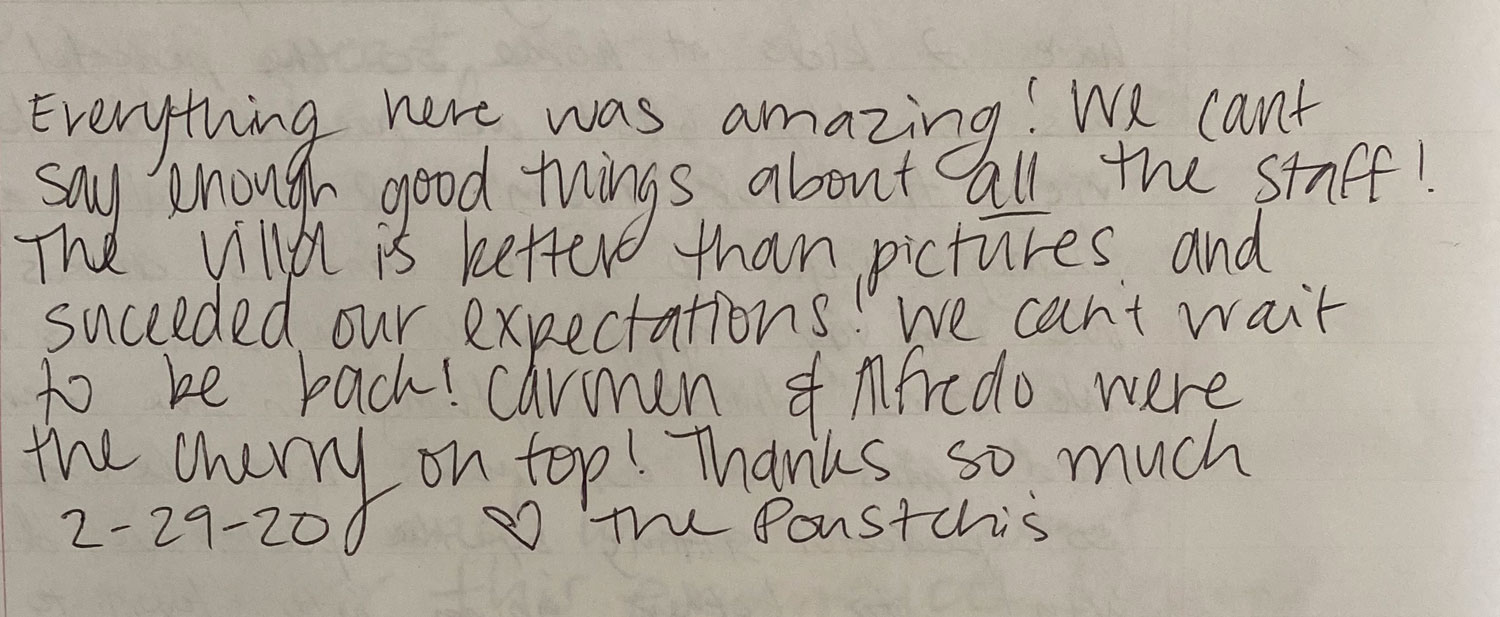 Everything here was amazing! We cant
say enough good things about all the staff!
The villa is better than pictures and
suceeded our expectations! We can't wait
to be back! Carmen & Alfredo were
the cherry on top! Thanks so much
2-29-20 ♡ The Poustchis